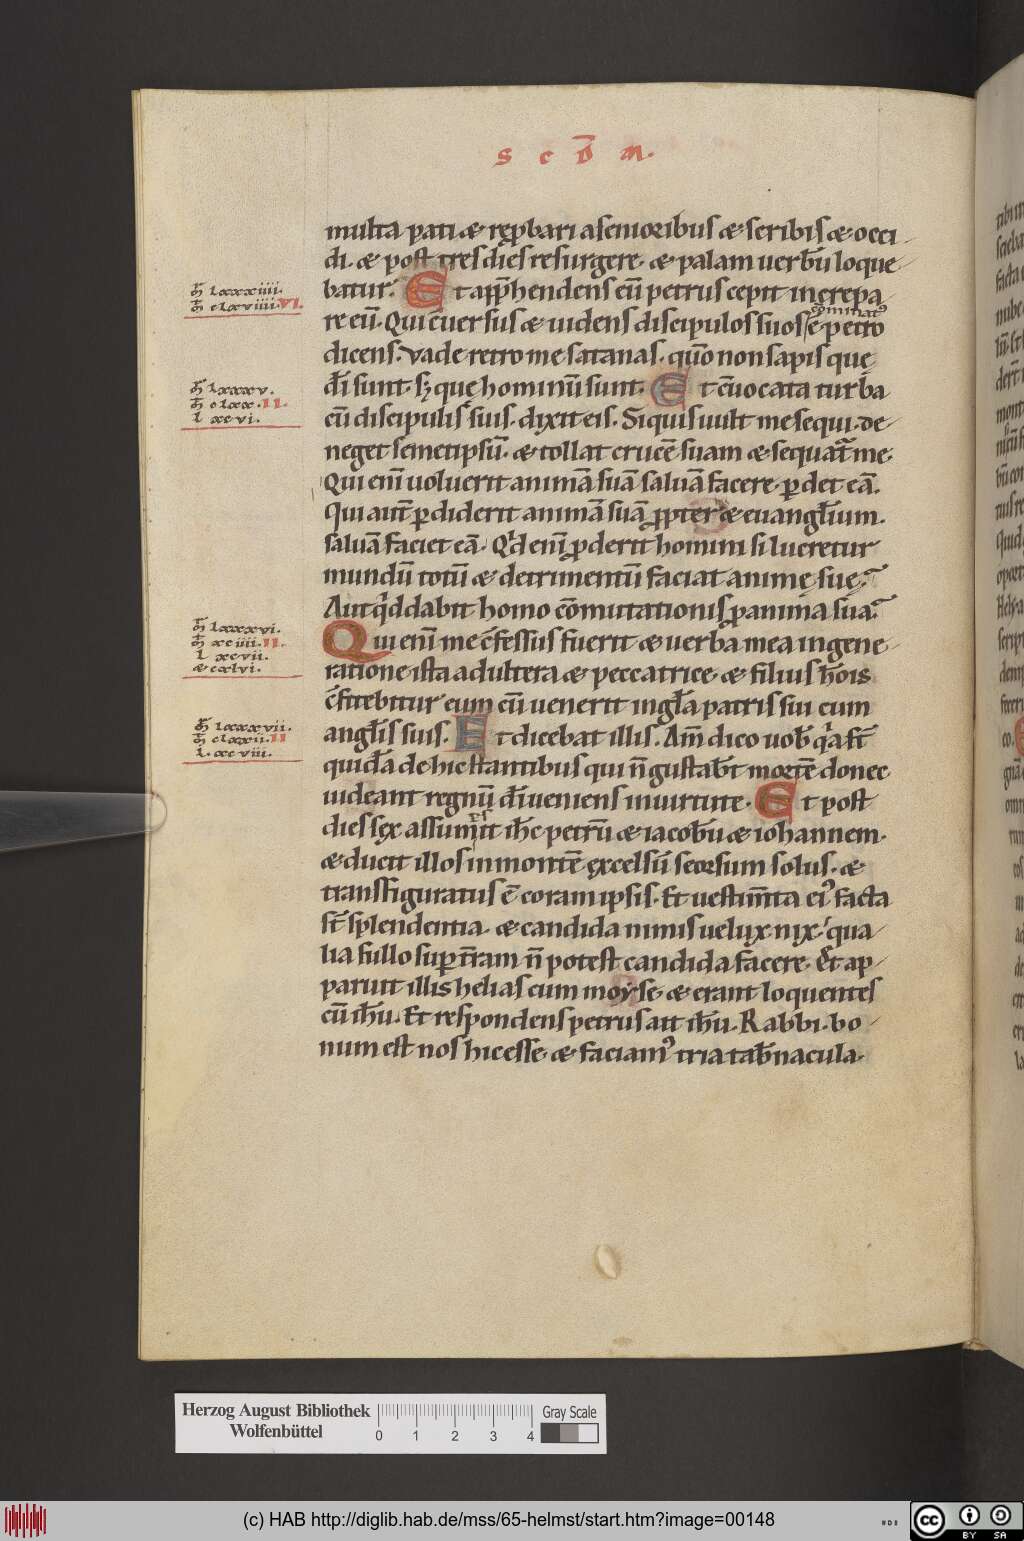 s c d̄ m.
multa pati. & rep̱bari a senioribus & scribis & occi
di. & post tres dies resurgere. & palam uerbū loque
batur. Et app̄hendens eū petrus cepit increpa
re eū. Qui c̄uersus & uidens discipulos suos c̄minatꝰ
ē petro
dicens. Vade retro me satanas. qūo non sapis quę
dī sunt. sꝫ quę hominū sunt. Et c̄uocata turba
cū discipulis suis. dixit eis. Si quis uult me sequi. de
neget semetipsū. & tollat crucē suam & sequat̄ me.
Qui enī uoluerit animā suā saluā facere. ꝑdet eā.
Qui aut̄ ꝑdiderit animā suā ꝓpter & euanglīum.
saluā faciet eā. Qd̓ enī ꝓderit homini si lucretur
mundū totū & detrimentū faciat animę suę?
Aut qd̓ dabit homo cōmutationis ꝓ anima sua?
Qui enī me c̄fessus fuerit & uerba mea in gene
ratione ista adultera & peccatrice. & filius hōis
c̄fitebitur eum cū uenerit in glā patris sui cum
anglīs suis. Et dicebat illis. Am̄ dico uob̄ qa st̄
quidā de hic stantibus qui n̄ gustab̄t mortē donec
uideant regnū dī ueniens in uirtute. Et post
dies sęx assumpsit ih̄c petrū & iacobū & iohannem.
& ducit illos in montē ęxcelsū seorsum solus. &
transfiguratus ē coram ipsis. Et uestim̄ta eiꝰ facta
st̄ splendentia. & candida nimis uelux nix. qua
lia fullo suꝑ t̄ram n̄ potest candida facere. Et ap
paruit illis helias cum moyse. & erant loquentes
cū ih̄u. Et respondens petrus ait ih̄u. Rabbi. bo
num est nos hic esse. & faciamꝰ tria tab̄nacula.
m̄ lxxxiiii.
m̄ clxviiii. VI.
m̄ lxxxv.
m̄ clxx. II.
l xcvi.
m̄ lxxxvi.
m̄ xciiii. II.
l xcvii.
& cxlvi.
m̄ lxxxvii.
m̄ clxxii. II
l. xcviii.
Herzog August Bibliothek
Wolfenbüttel
0 1 2 3 4
Gray Scale
(c) HAB http://diglib.hab.de/mss/65-helmst/start.htm?image=00148
cc BY SA